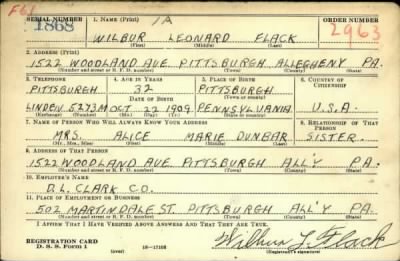 F61
SERIAL NUMBER 1. NAME (Print) 1A ORDER NUMBER
1868 WILBUR LEONARD FLACK 2963
(First) (Middle) (Last)
2. ADDRESS (Print)
1522 WOODLAND AVE. PITTSBURGH ALLEGHENY PA.
(Number and street or R. F. D. number) (Town) (County) (State)
3. TELEPHONE 4. AGE IN YEARS 5. PLACE OF BIRTH 6. COUNTRY OF CITIZENSHIP
PITTSBURGH 32 PITTSBURGH
DATE OF BIRTH (Town or county)
LINDEN 5273M OCT. 22 1909 PENNSYLVANIA U.S.A.
(Exchange) (Number) (Mo.) (Day) (Yr.) (State or country)
7. NAME OF PERSON WHO WILL ALWAYS KNOW YOUR ADDRESS 8. RELATIONSHIP OF THAT PERSON
MRS. ALICE MARIE DUNBAR SISTER.
(Mr., Mrs., Miss) (First) (Middle) (Last)
9. ADDRESS OF THAT PERSON
1522 WOODLAND AVE. PITTSBURGH ALL'Y PA.
(Number and street or R. F. D. number) (Town) (County) (State)
10. EMPLOYER'S NAME
D.L. CLARK CO.
11. PLACE OF EMPLOYMENT OR BUSINESS
502 MARTINDALE ST. PITTSBURGH ALL'Y PA.
(Number and street or R. F. D. number) (Town) (County) (State)
I AFFIRM THAT I HAVE VERIFIED ABOVE ANSWERS AND THAT THEY ARE TRUE.
REGISTRATION CARD
D. S. S. Form 1 (over) 16—17105 Wilbur L. Flack
(Registrant's signature)